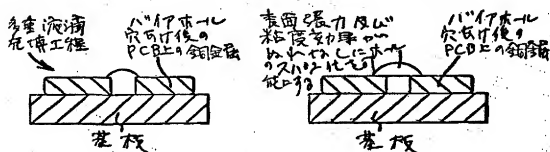 多重液滴
充填工程
バイアホール
穴あけ後の
PCB上の銅金属
基板
表面張力及び
粘度効果が
ぬれなしにホール
能にする
バイアホール
穴あけ後の
PCB上の銅金属
基板